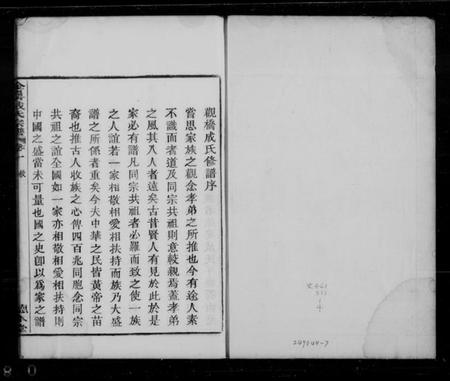 觀橋成氏修譜序
嘗思家族之觀念孝弟之所推也今有途人素
不識而者道及同宗共祖則意較親焉蓋孝弟
之風其入人者遠矣古昔賢人有見於此於是
家必有譜凡同宗共祖者必羅而致之使一族
之人誼若一家相敬相愛相扶持而族乃大盛
譜之所係者重矣今夫中華之民皆黃帝之苗
裔也推古人收族之心俾四百兆同胞念同宗
共祖之誼全國如一家亦相敬相愛相扶持則
中國之盛當未可量也國之史卽以爲家之譜
249044-7